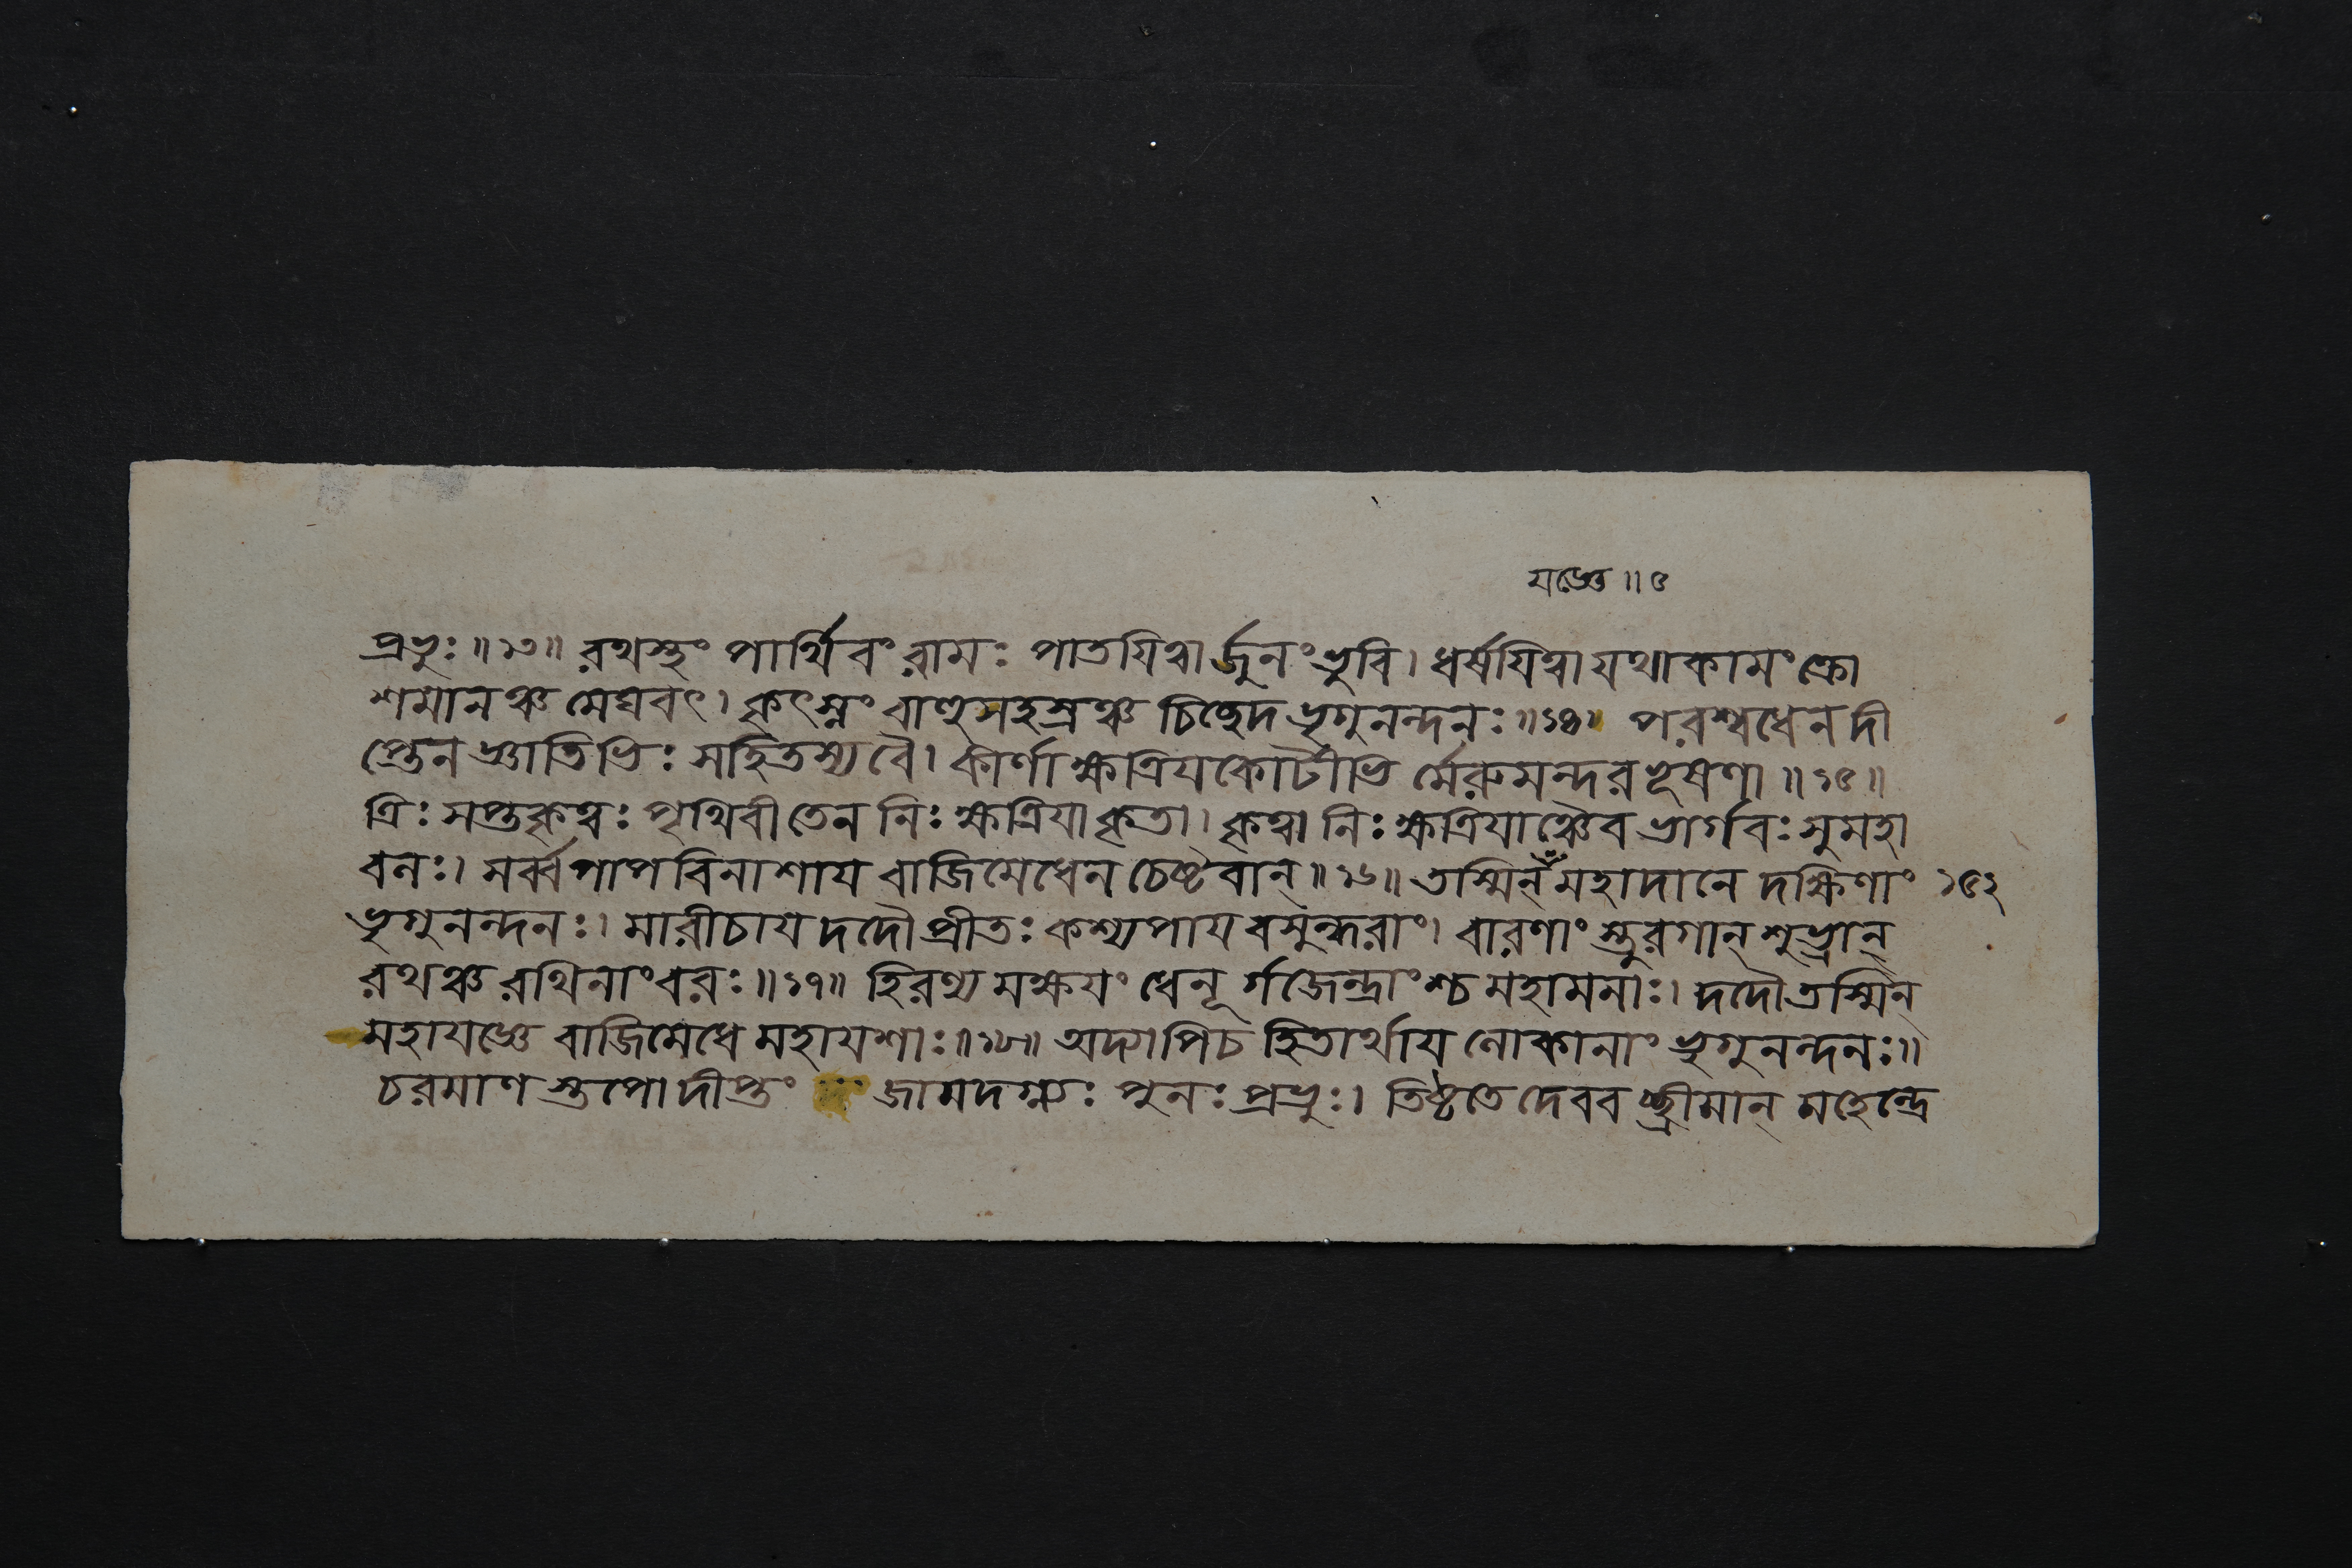 যজ্ঞে ॥ ৫
প্রভুঃ ॥ ১৩ ॥ রথস্থং পার্থিবং রামঃ পাতয়িত্বার্জুনং ভুবি । ধর্ষয়িত্বা যথাকামং ক্রো
শমানঞ্চ মেঘবৎ । কৃৎস্নং বাহুসহস্রঞ্চ চিচ্ছেদ ভৃগুনন্দনঃ ॥ ১৪ ॥ পরশ্বধেন দী
প্তেন জ্ঞাতিভিঃ সহিতস্য বৈ । কীর্ণা ক্ষত্রিয়কোটীভি র্মেরুমন্দরভূষণা ॥ ১৫ ॥
ত্রিঃ সপ্তকৃত্বঃ পৃথিবী তেন নিঃক্ষত্রিয়া কৃতা । কৃত্বা নিঃক্ষত্রিয়াঞ্চৈব ভার্গবঃ সুমহা
বলঃ । সর্ব্বপাপবিনাশায় বাজিমেধেন চেষ্টবান্ ॥ ১৬ ॥ তস্মিন্ মহাদানে দক্ষিণাং ১৫২
ভৃগুনন্দনঃ । মারীচায় দদৌ প্রীতঃ কশ্যপায় বসুন্ধরাং । বারণাং স্তুরগান্ শুভ্রান্
রথঞ্চ রথিনাং বরঃ ॥ ১৭ ॥ হিরণ্য মক্ষয়ং ধেনূ র্গজেন্দ্রাংশ্চ মহামনাঃ । দদৌ তস্মিন্
মহাযজ্ঞে বাজিমেধে মহাযশাঃ ॥ ১৮ ॥ অদ্যাপি চ হিতার্থায় লোকানাং ভৃগুনন্দনঃ ॥
চরমাণ স্তপো দীপ্তং জামদগ্ন্যঃ পুনঃ প্রভুঃ । তিষ্ঠতে দেবব চ্ছ্রীমান্ মহেন্দ্রে